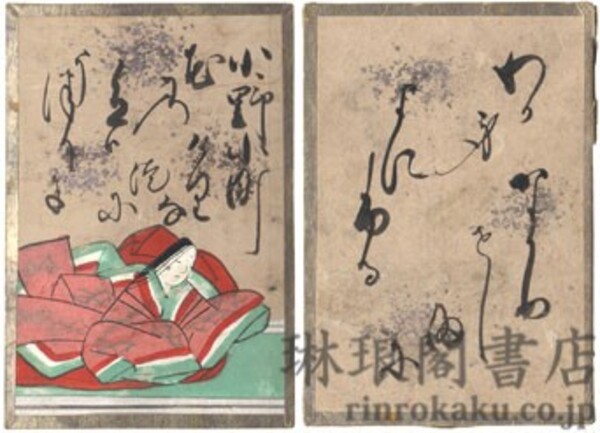 小野小町
花
の
色は
うつりに
けりな
わか
身
よに
ふる
なかめ
せし
まに
琳琅閣書店
rinrokaku.co.jp